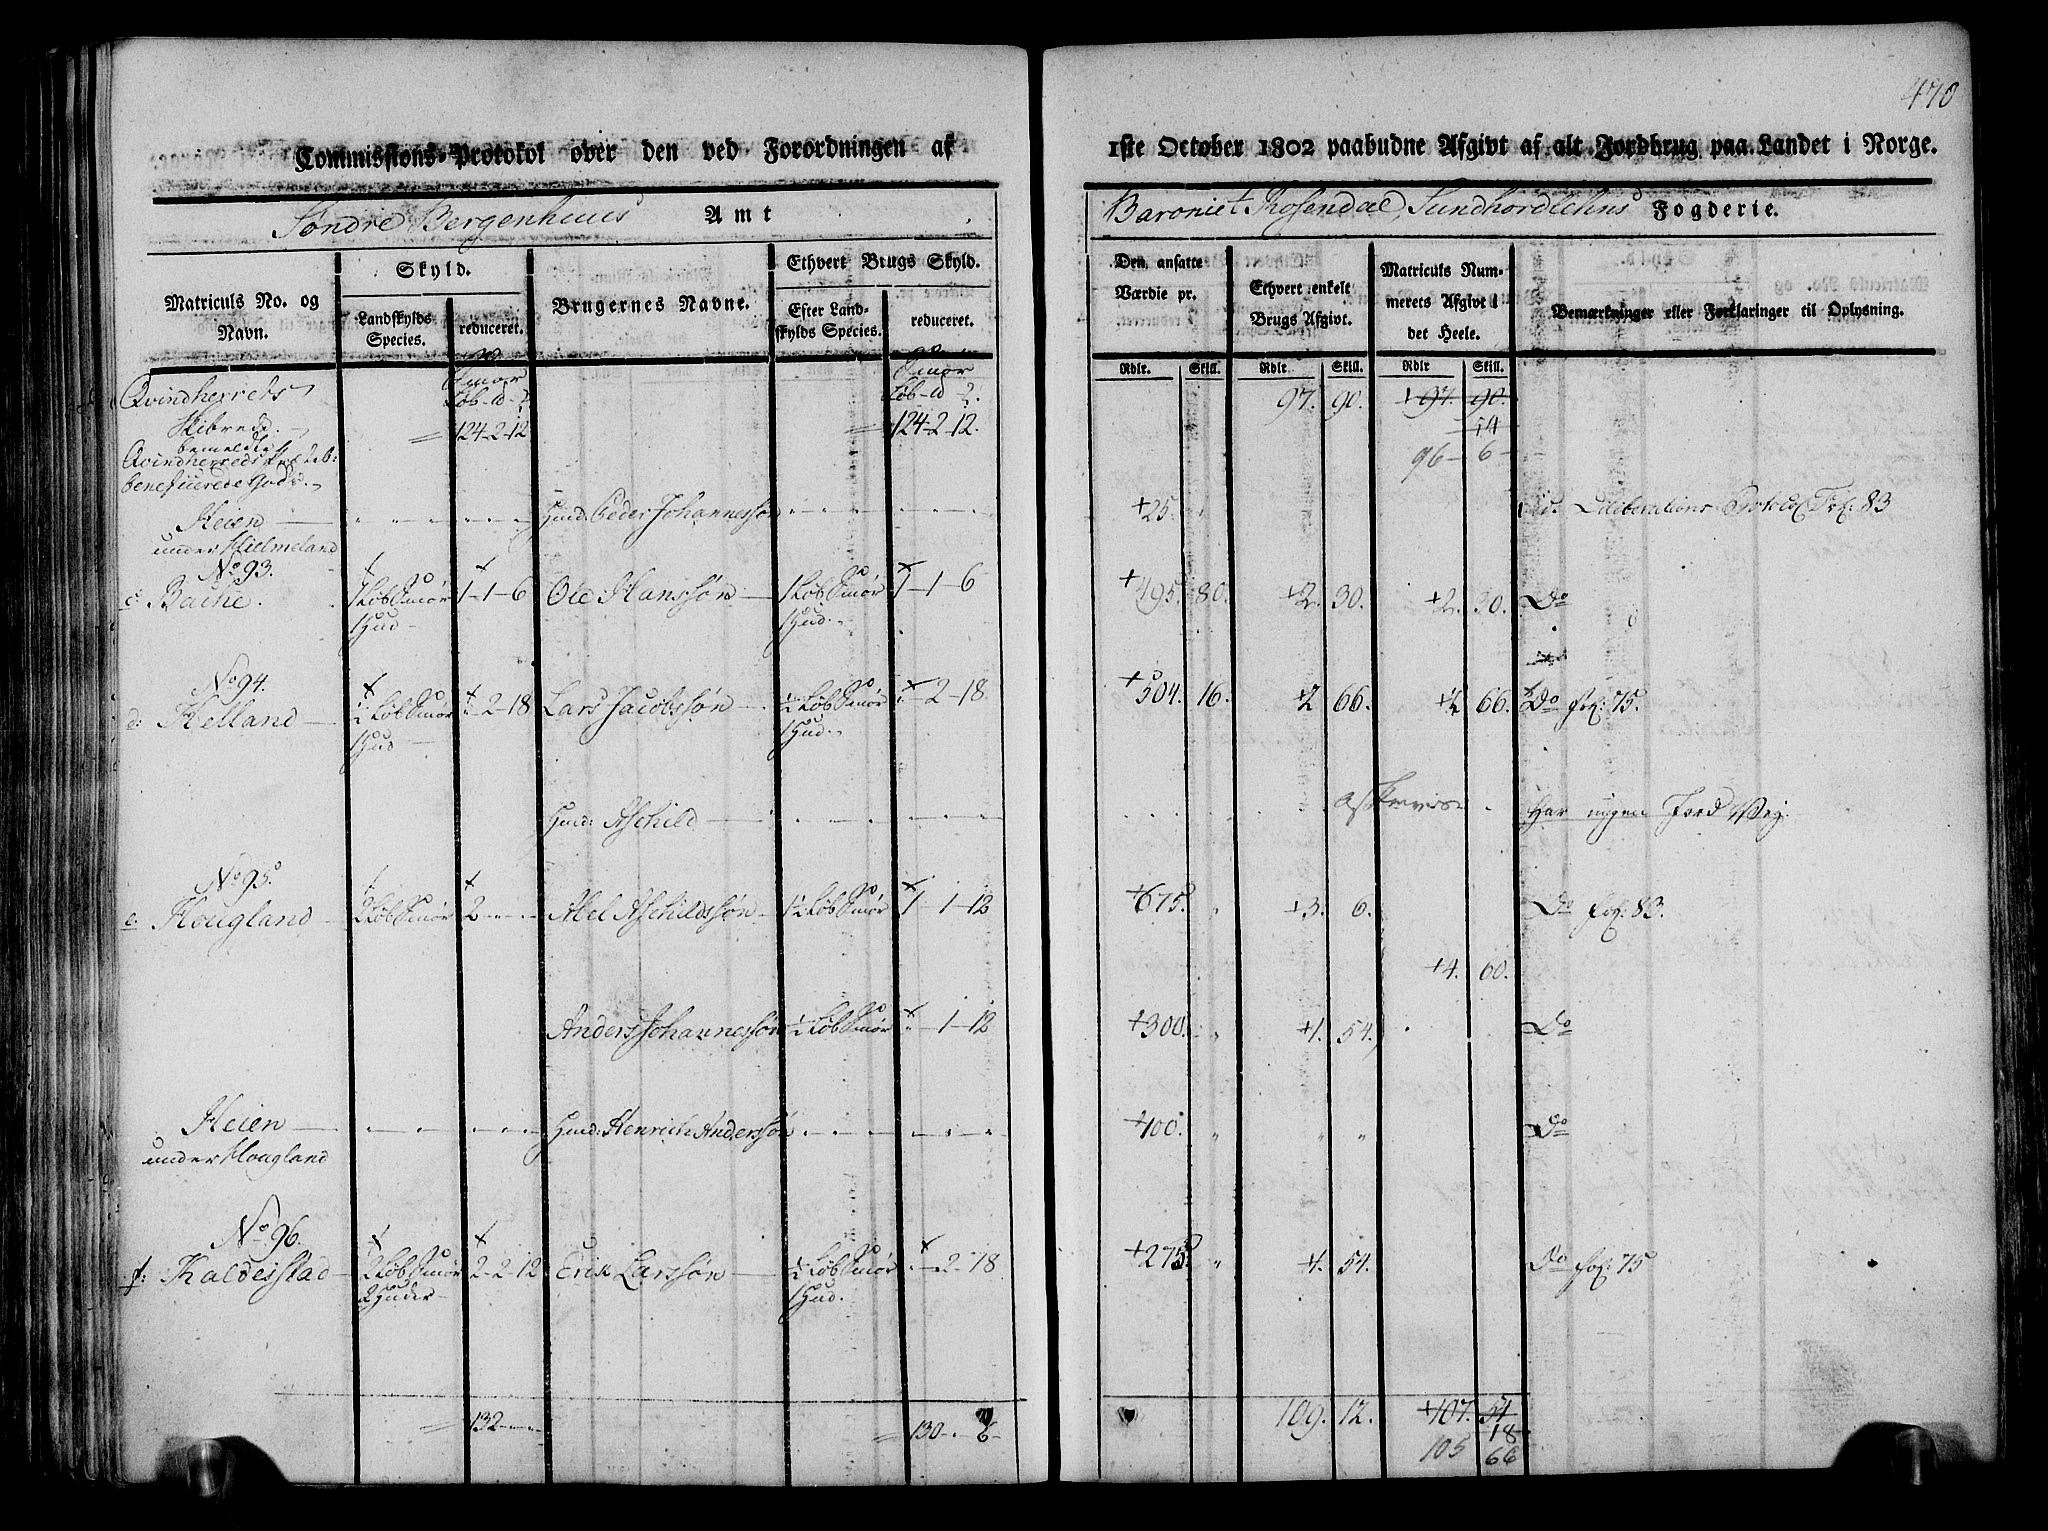 470
Commissions-Protokol over den ved Forordningen af 1ste October 1802 paabudne Afgivt af alt Jordbrug paa Landet i Norge.
Søndre Bergenhuus Amt
Baroniet Rosendal, Sundhordlehns Fogderie.
Matriculs No. og Navn.
Skyld.
Landskylds Species.
reduceret.
Brugernes Navne.
Ethvert Brugs Skyld.
Efter Landskylds Species.
reduceret.
Den ansatte Værdie pr.
Ethvert enkelt Brugs Afgivt.
Matriculs Nummerets Afgivt i det Heele.
Bemærkninger eller Forklaringer til Oplysning.
Rdlr. Skill. Rdlr. Skill. Rdlr. Skill.
Qvindherrets Skibrede. Smør Løb - 124-2-12 Smør Løb - 124-2-12. 97. 90. +97. 90.
14
96 - 6 -
bemeldte
Qvindherreds
beneficerede Gods.
Heien Huusmd: Peder Johannessøn +25. Deliberations Protocol Fol: 83
under Hielmeland
No 93.
c. Bache. 1 Løb Smør 1-1-6 Ole Hanssøn 1 Løb Smør 1-1-6 +495. 80. +2. 30. +2. 30. Do
1 Hud 1 Hud
No 94.
d: Helland ½ Løb Smør -2-18 Lars Jacobssøn ½ Løb Smør -2-18 +504. 16. +2 66. +2 66. Do Fol: 75.
1 Hud 1 Hud
Huusmd: Aschild Har ingen Jord Vej.
No 95.
e. Hougland 2 Løb Smør 2 Abel Aschildssøn 1½ Løb Smør 1-1-12 +675. +3. 6. Do Fol: 83.
+4. 60.
Anders Johannessøn ½ Løb Smør -1-12 +300. +1. 54. Do
Heien Huusmd: Henrich Anderssøn +100. Do
under Hougland
No 96.
f: Kaldestad 2 Løb Smør 2-2-12 Erik Larssøn ½ Løb Smør -2-18 +275. +1. 54. Do Fol: 75
2 Huder 1 Hud.
132 130 - 6 - 109. 12. +107. 54
18
105 66